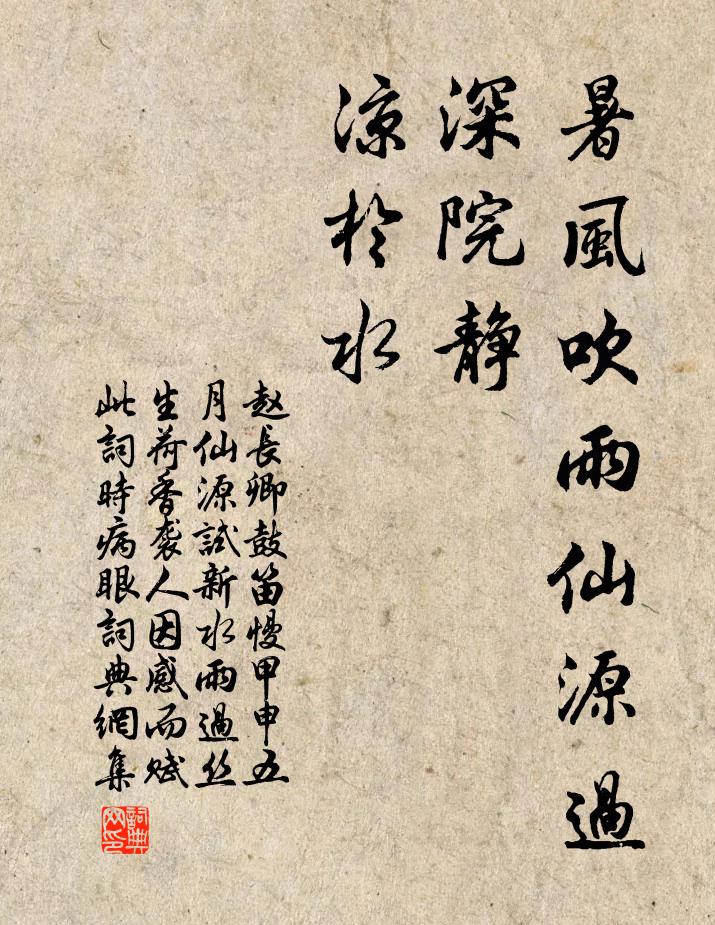 暑風吹雨仙源過
深院静
凉於水
赵長卿鼓笛慢甲申五
月仙源試新水雨過丝
生荷香袭人因感而赋
此詞時病眼詞典網集
詞典
网印